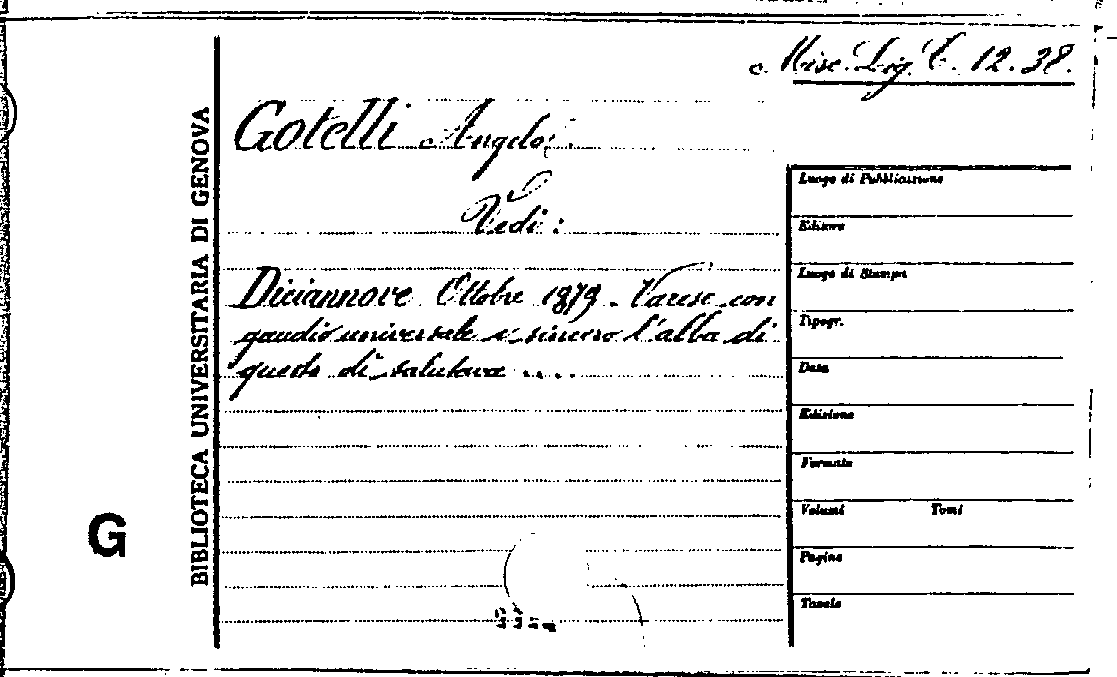 Misc. Lig. C. 12. 38.
Gotelli Angelo.
Vedi :
Diciannove Ottobre 1879. Varese con
gaudio universale e sincero l'alba di
questo dì salutava ....
BIBLIOTECA UNIVERSITARIA DI GENOVA
G
Luogo di Pubblicazione
Editore
Luogo di Stampa
Tipogr.
Data
Edizione
Formato
Volumi Tomi
Pagine
Tavole